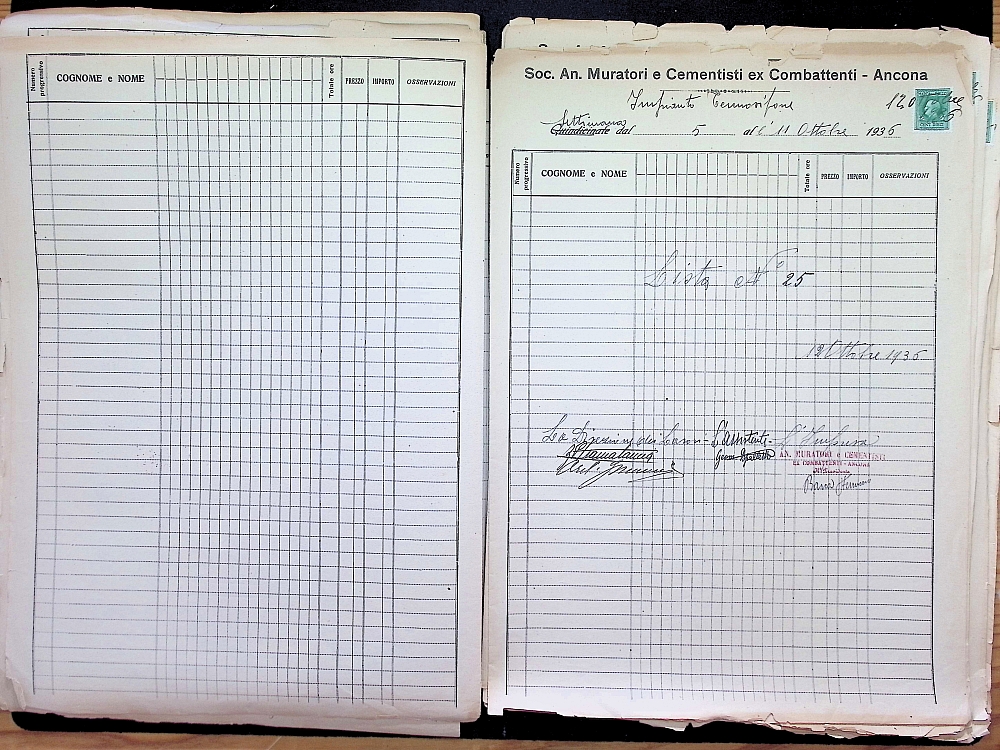 Numero progressivo COGNOME e NOME Totale ore PREZZO IMPORTO OSSERVAZIONI
Soc. An. Muratori e Cementisti ex Combattenti - Ancona
Impianto Termosifone
Settimana
Quindicinale dal 5 al 11 Ottobre 1936
Numero progressivo COGNOME e NOME Totale ore PREZZO IMPORTO OSSERVAZIONI
Lista N° 25
12 Ottobre 1936
La Direzione dei Lavori L'Assistente L'Impresa
AN. MURATORI e CEMENTISTI
EX COMBATTENTI - ANCONA